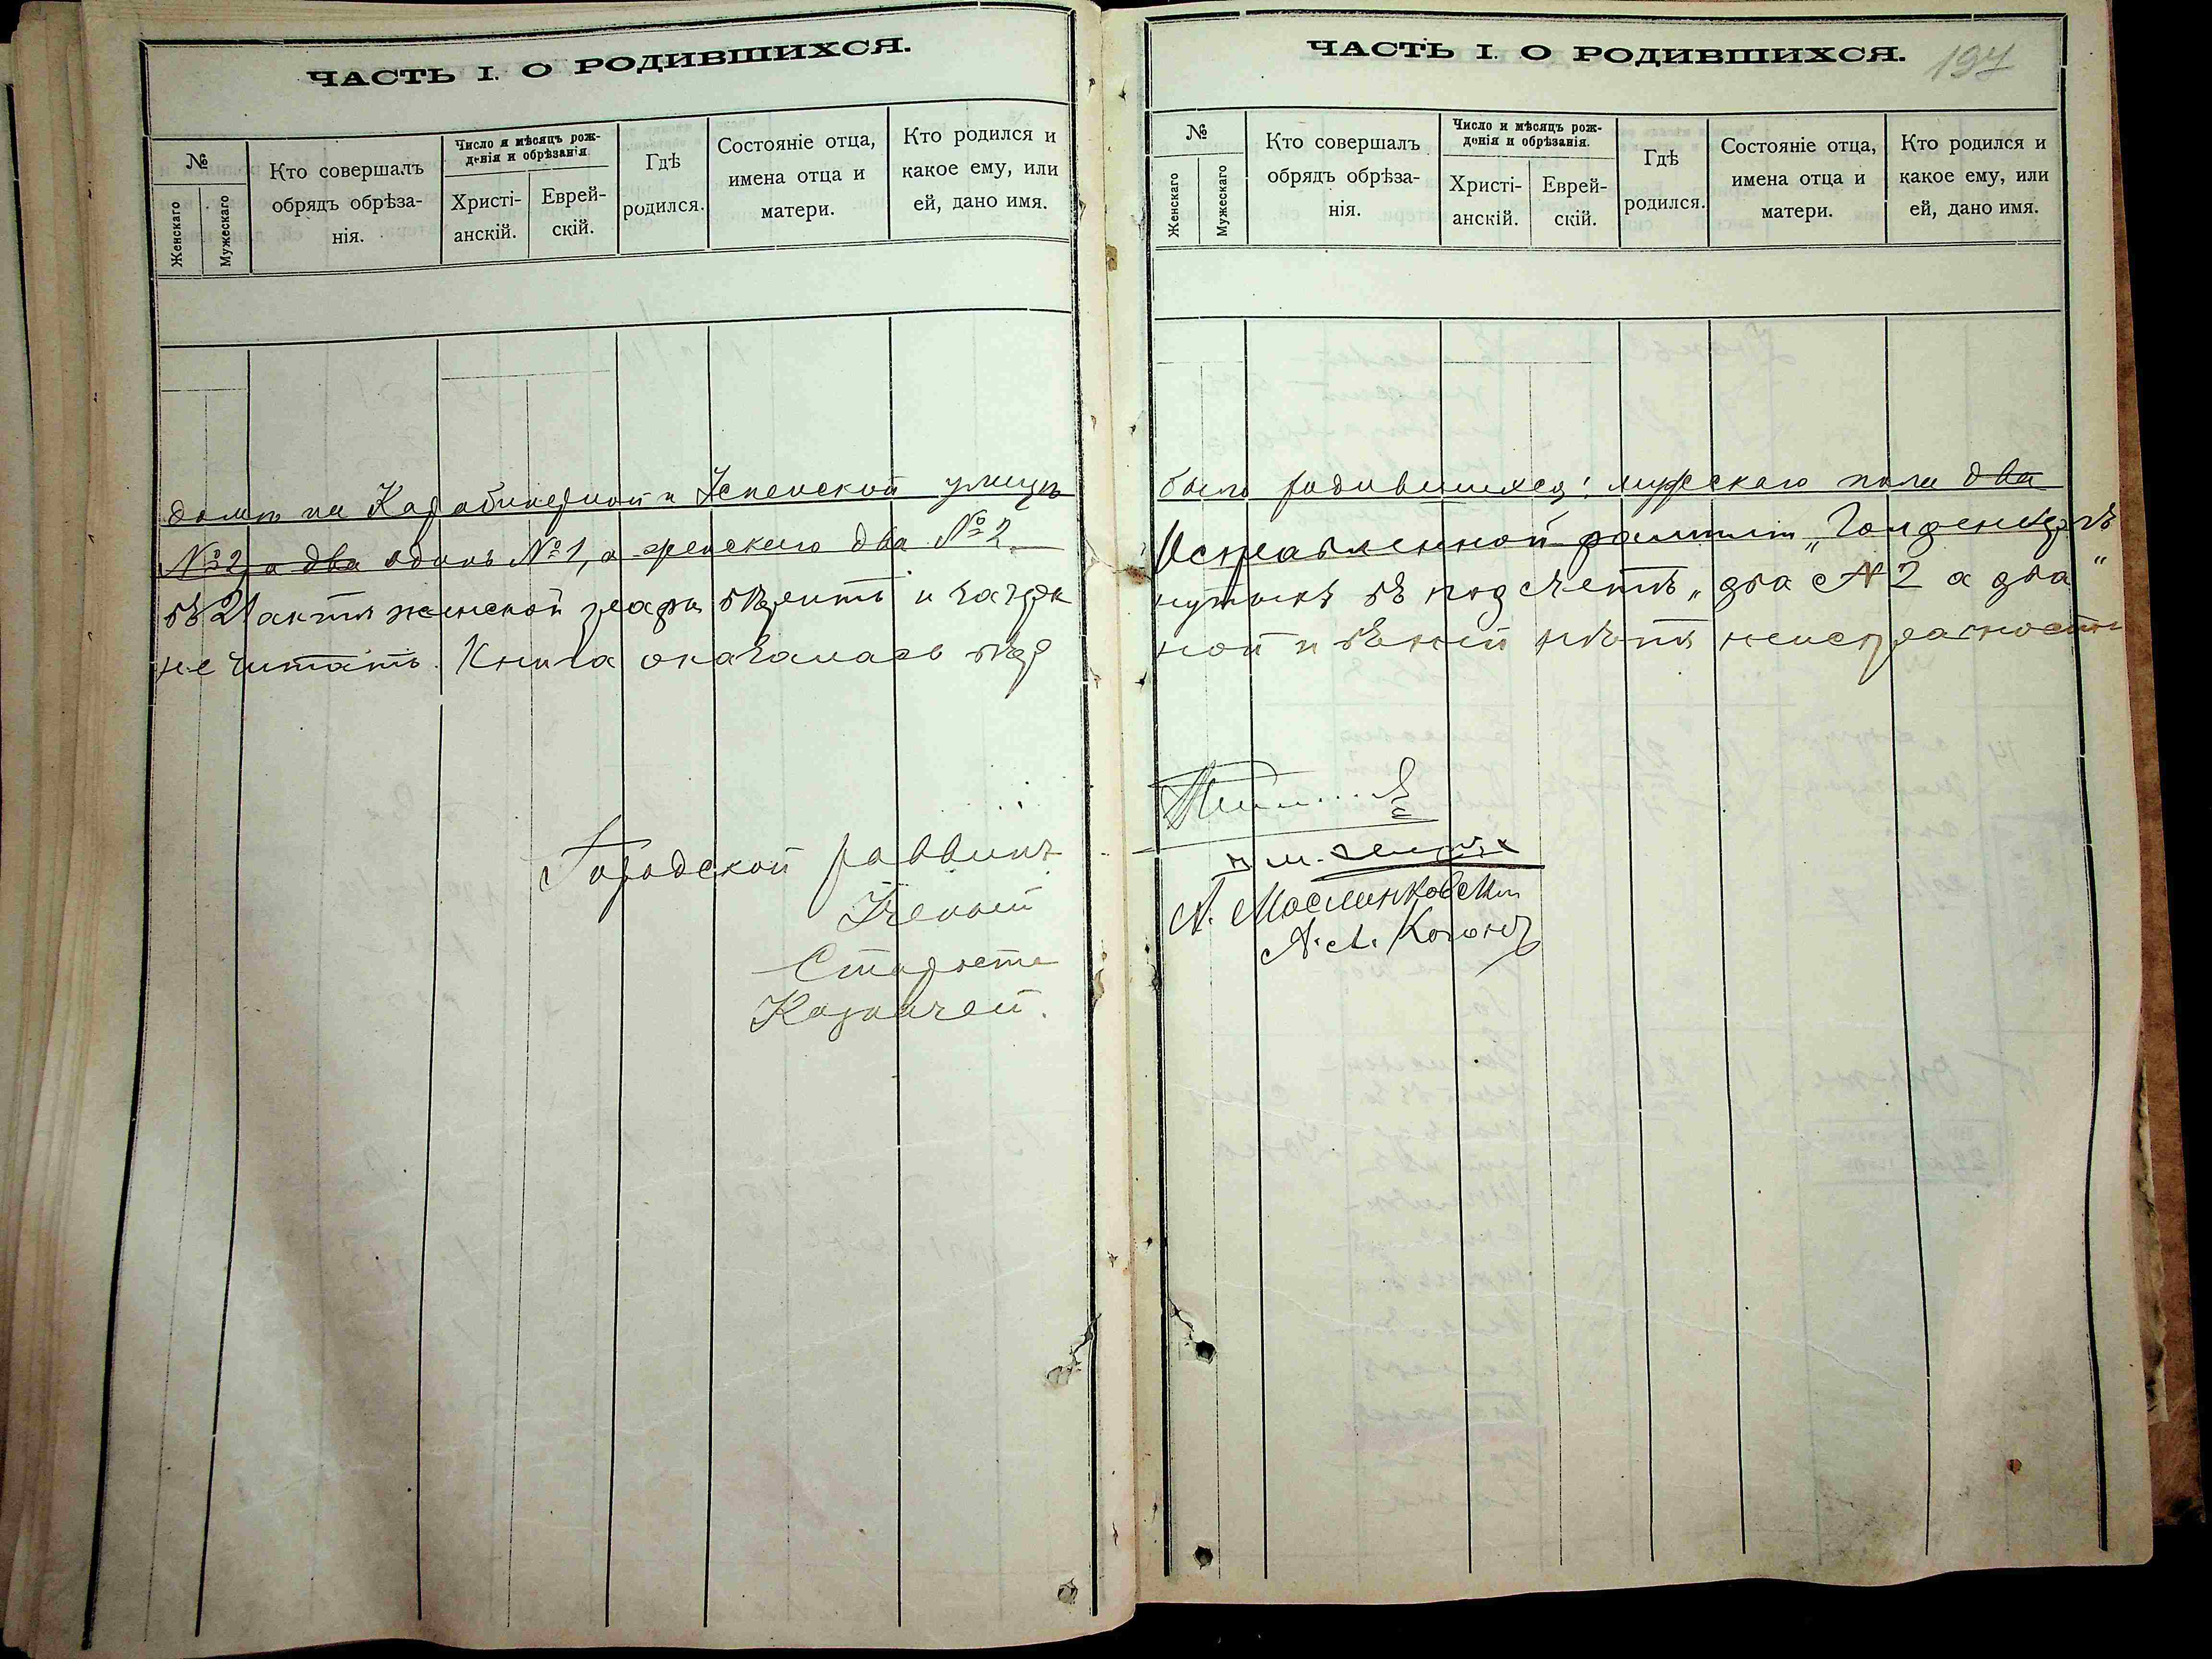 ЧАСТЬ I. О РОДИВШИХСЯ.
№
Женскаго
Мужескаго
Кто совершалъ
обрядъ обрѣза-
нія.
Число и мѣсяцъ рож-
денія и обрѣзанія.
Христі-
анскій.
Еврей-
скій.
Гдѣ
родился.
Состояніе отца,
имена отца и
матери.
Кто родился и
какое ему, или
ей, дано имя.
домъ на Карабинерной и Успенской улицъ
№2, а два одинъ №1, а женскаго два №2.
въ 21 актѣ женской графы вѣрить и
не читать. Книга оказалась
Городской раввинъ
Ученый
Староста
Казначей.
ЧАСТЬ I. О РОДИВШИХСЯ.
197
№
Женскаго
Мужескаго
Кто совершалъ
обрядъ обрѣза-
нія.
Число и мѣсяцъ рож-
денія и обрѣзанія.
Христі-
анскій.
Еврей-
скій.
Гдѣ
родился.
Состояніе отца,
имена отца и
матери.
Кто родился и
какое ему, или
ей, дано имя.
было родившихся: мужскаго пола два
Исправленной фамиліи
въ подсчетѣ „два №2 а два"
ной и въ ней нѣтъ неисправности
А.
А. Л. Коганъ